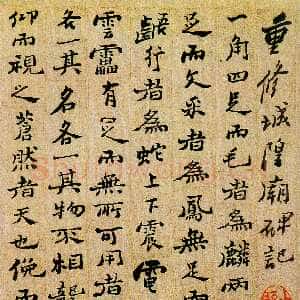 重修城隍廟碑記
一角四足而毛者為麟兩
足而文采者為鳳無足而
齬行者為蛇上下震電
雲有足而無所可用者
各一其名各一其物不相
仰而視之蒼然者天也俛而